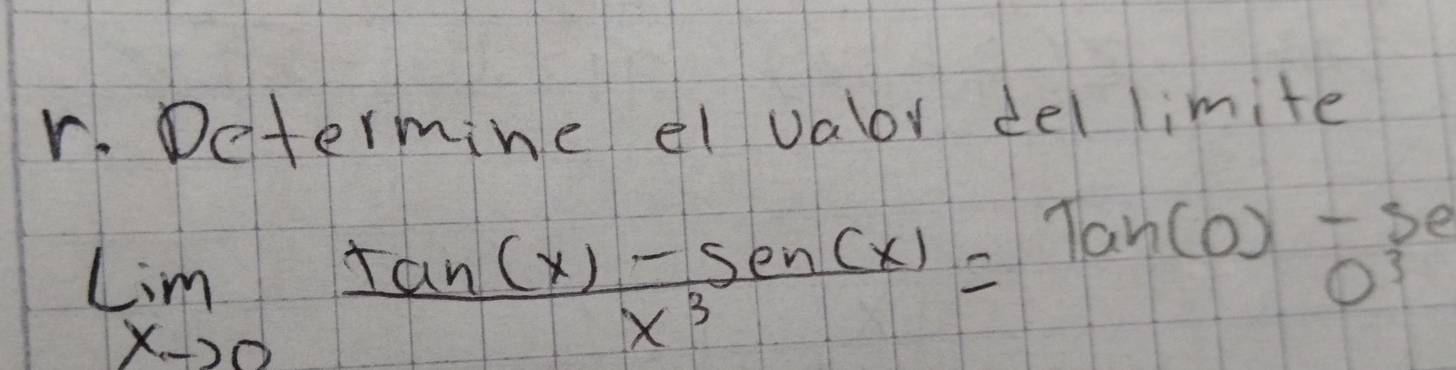 r. Determine el valor del limite
Lim x→0 Tan(x) - Sen(x) / x³ = Tan(0) - Se / 0³